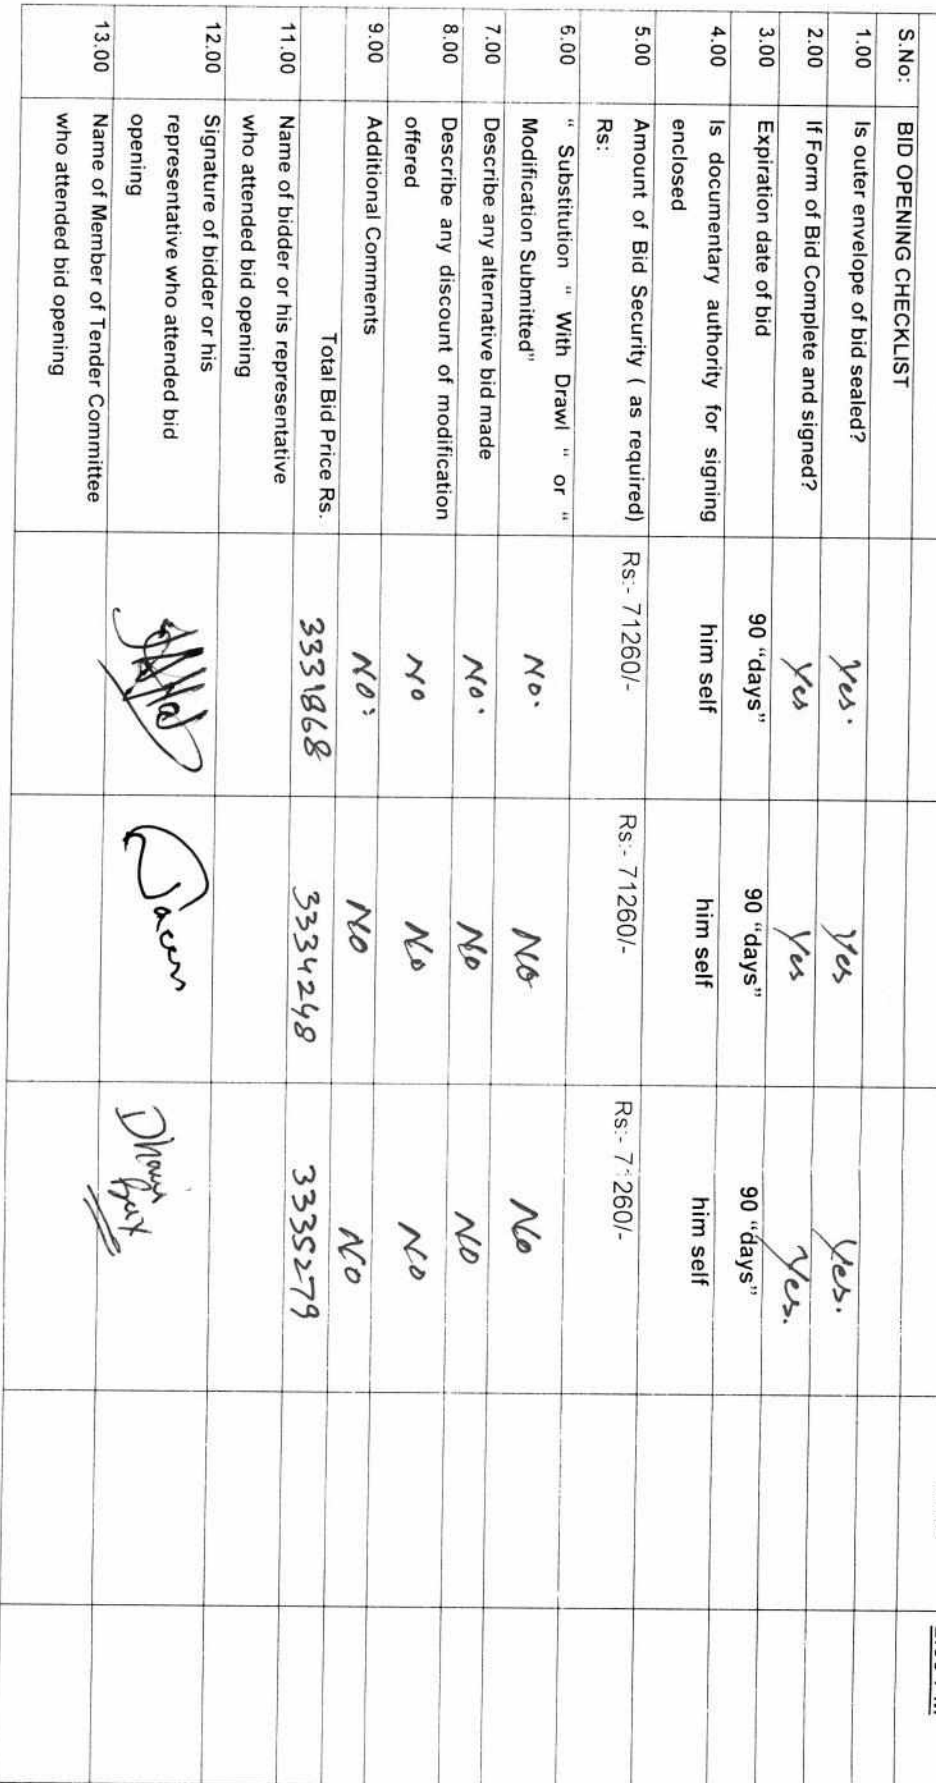 S.No: BID OPENING CHECKLIST
1.00 Is outer envelope of bid sealed? Yes. Yes Yes.
2.00 If Form of Bid Complete and signed? Yes Yes Yes.
3.00 Expiration date of bid 90 “days” 90 “days” 90 “days”
4.00 Is documentary authority for signing him self him self him self
enclosed
5.00 Amount of Bid Security ( as required) Rs:- 71260/- Rs:- 71260/- Rs:- 71260/-
Rs:
6.00 “ Substitution “ With Drawl “ or “
Modification Submitted” No. No No
7.00 Describe any alternative bid made No. No No
8.00 Describe any discount of modification No No No
offered
9.00 Additional Comments No. No No
Total Bid Price Rs. 3331868 3334248 3335279
11.00 Name of bidder or his representative
who attended bid opening
12.00 Signature of bidder or his
representative who attended bid
opening
Bux
13.00 Name of Member of Tender Committee
who attended bid opening